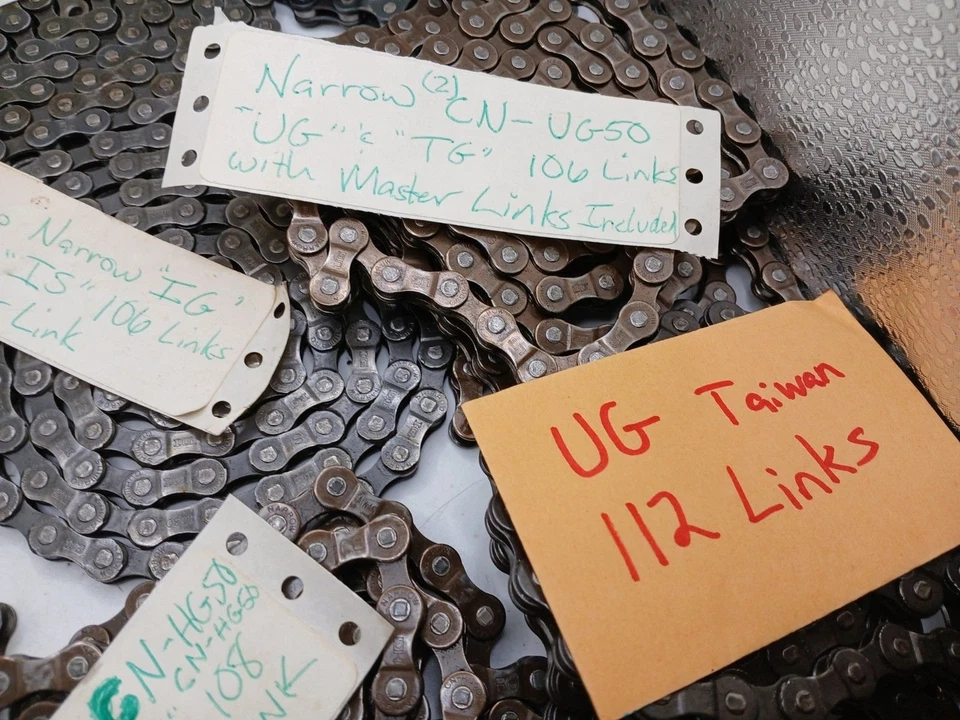 Narrow (2) CN-UG50
"UG" & "TG" 106 Links
with Master Links Included
Narrow "IG"
"IS" 106 Links
Link
UG Taiwan
112 Links
CN-HG50
CN-HG50
108